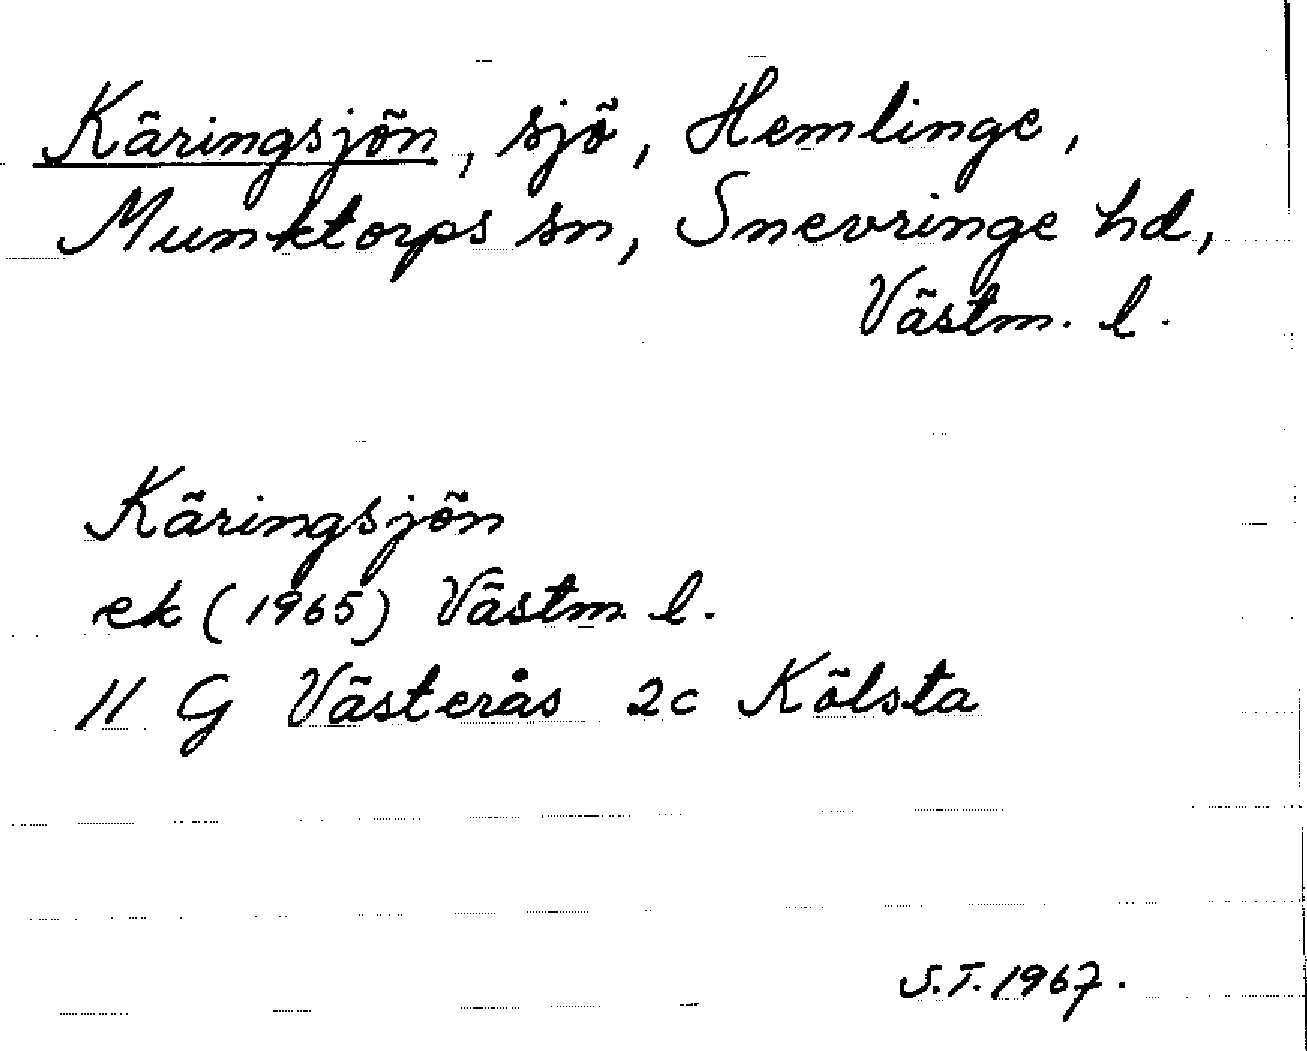 Käringsjön, sjö, Hemlinge,
Munktorps sn, Snevringe hd,
Västm. l.
Käringsjön
ek (1965) Västm. l.
11 G Västerås 2c Kölsta
S.T. 1967.